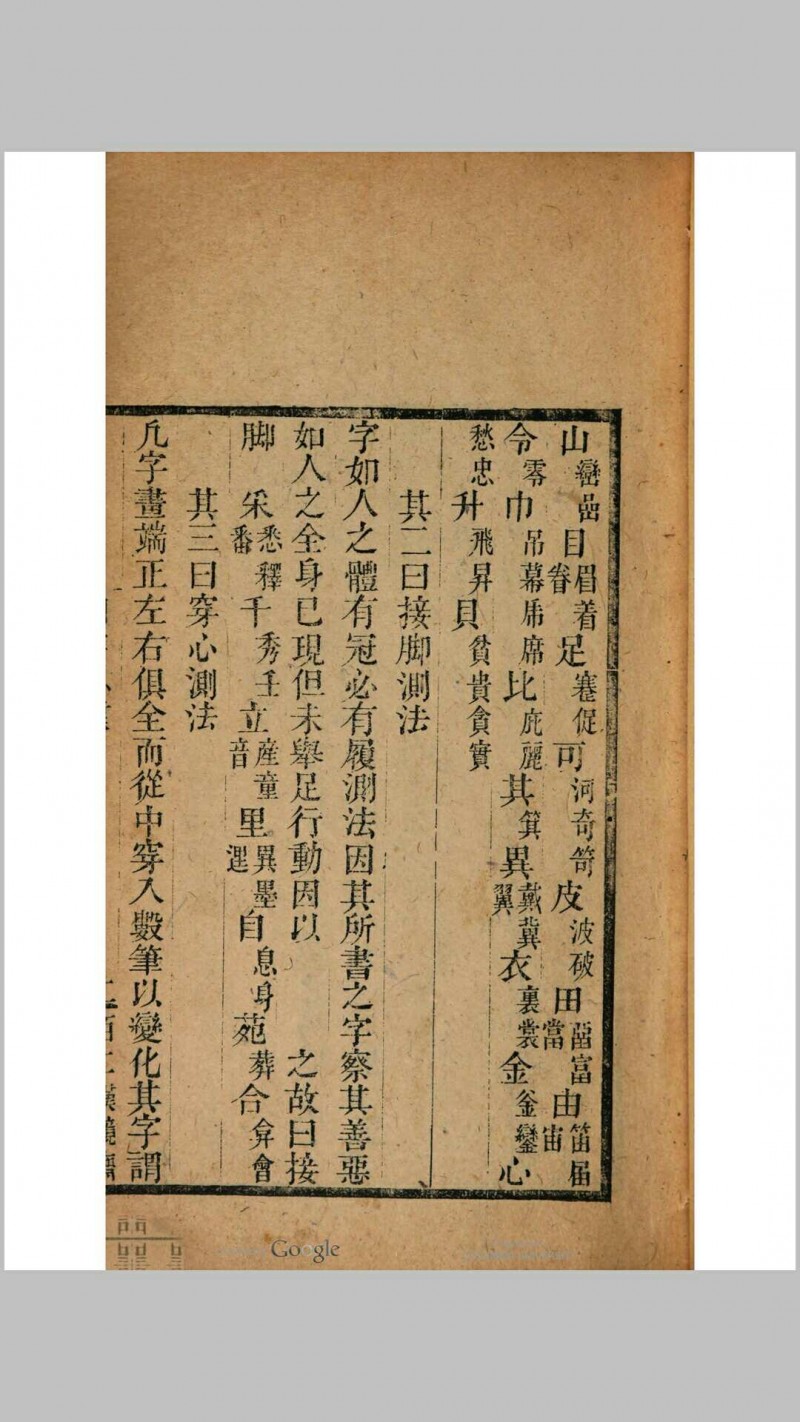 山巒嵒目眉着睂足蹇促可河奇笴皮波破田畐富當由笛届宙
令零巾吊幕帍席比庇麗其箕異戴冀翼衣裏裳金釜鑾心
愁忠升飛昇貝貧貴貪實
其二曰接脚測法
字如人之體有冠必有履測法因其所書之字察其善惡
如人之全身已現但未舉足行動因以之故曰接
脚采悉釋番千秀壬立産童音里異墨遈自息身茒葬合弇會
其三曰穿心測法
凡字畫端正左右俱全而從中穿入數筆以變化其字謂
Google